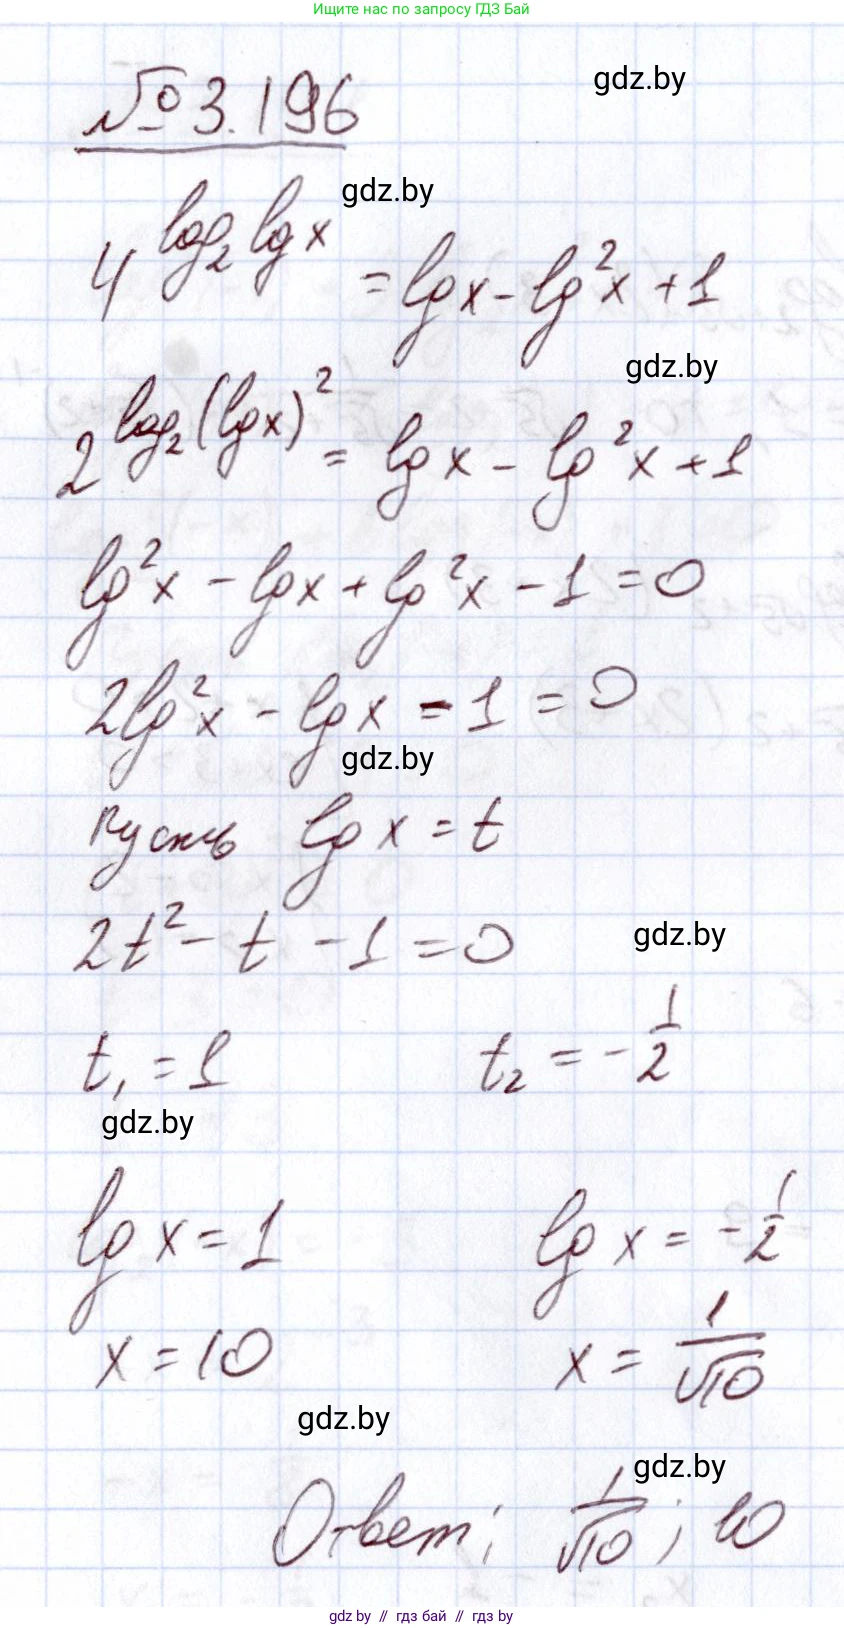 Ищите нас по запросу ГДЗ Бай
№ 3.196
gdz.by
gdz.by
4^(log₂ lg x) = lg x - lg²x + 1
gdz.by
2^(log₂(lg x)²) = lg x - lg²x + 1
lg²x - lg x + lg²x - 1 = 0
2lg²x - lg x - 1 = 0
gdz.by
Пусть lg x = t
2t² - t - 1 = 0
gdz.by
t₁ = 1 t₂ = -1/2
gdz.by
lg x = 1 lg x = -1/2
x = 10 x = 1/√10
gdz.by
gdz.by
Ответ: 1/√10; 10
gdz.by // гдз бай // гдз by